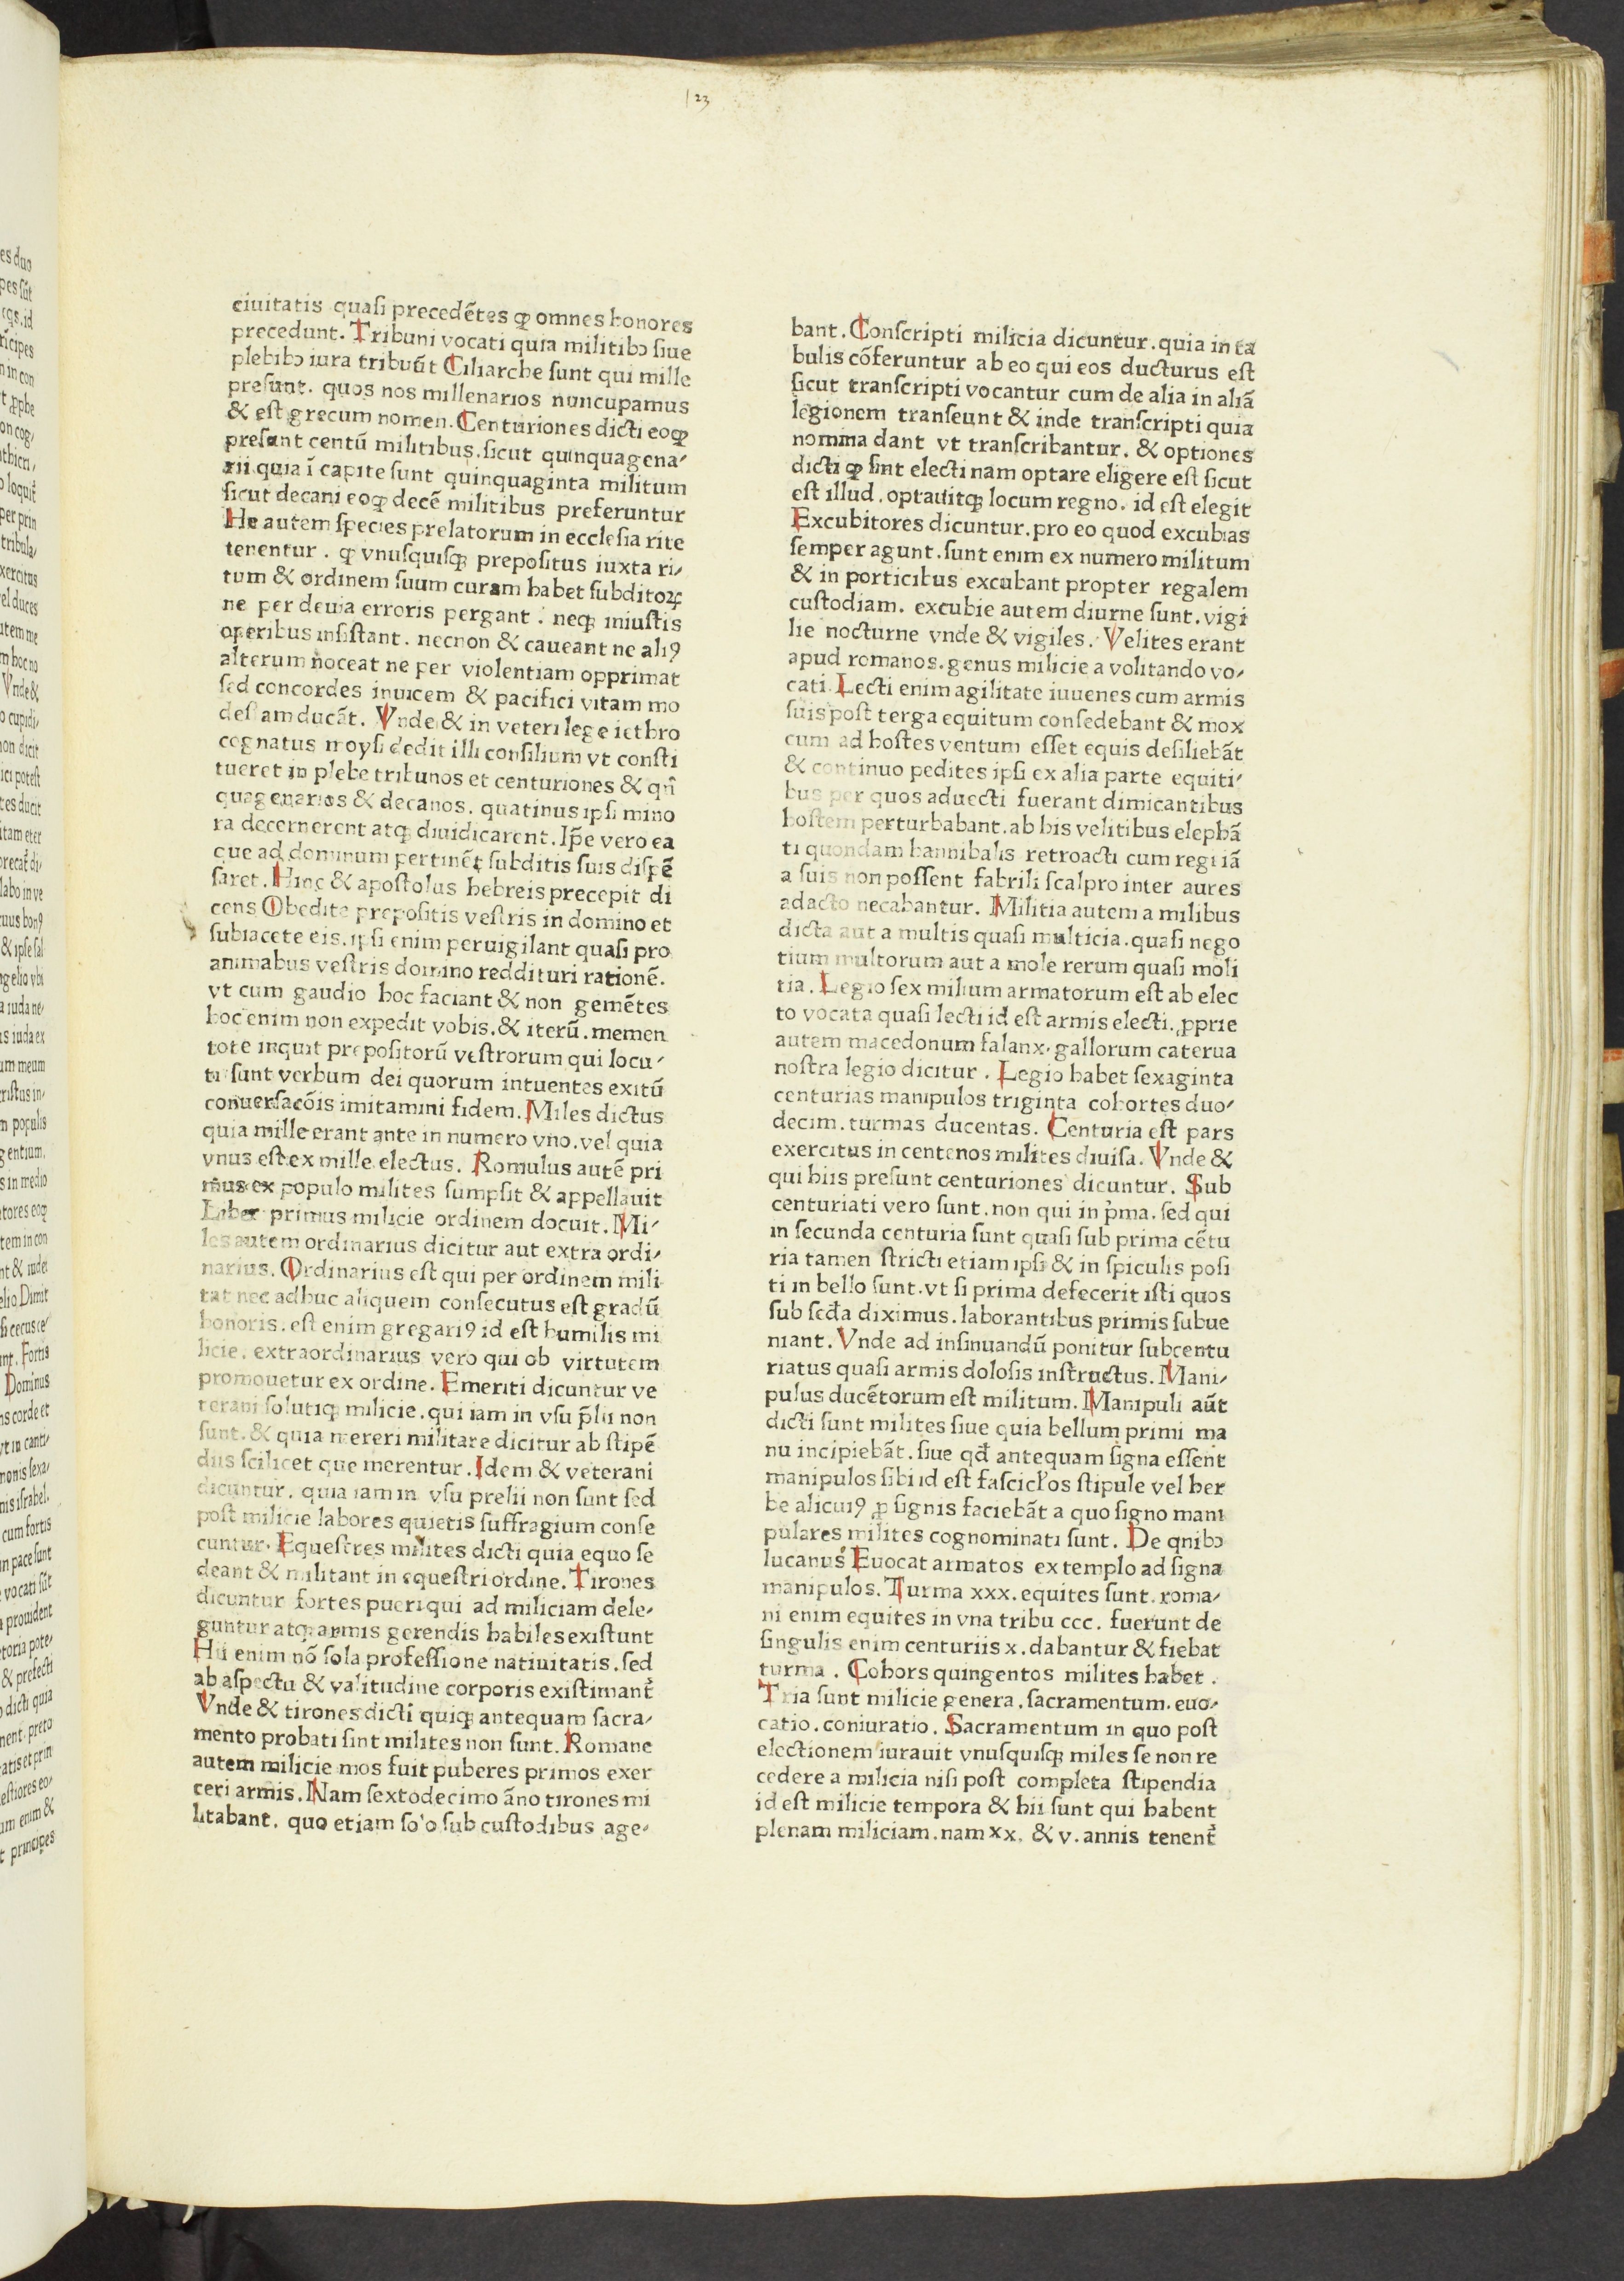 123
ciuitatis quasi precedētes ꝙ omnes honores
precedunt. Tribuni vocati quia militibꝫ siue
plebibꝫ iura tribuūt Ciliarche sunt qui mille
presunt. quos nos millenarios nuncupamus
& est grecum nomen. Centuriones dicti eoꝙ
presunt centū militibus. sicut quinquagena/
rii quia ī capite sunt quinquaginta militum
sicut decani eoꝙ decē militibus preferuntur
He autem species prelatorum in ecclesia rite
tenentur. ꝙ vnusquisqꝫ prepositus iuxta ri/
tum & ordinem suum curam habet subditoꝝ
ne per deuia erroris pergant. neqꝫ iniustis
operibus insistant. necnon & caueant ne aliꝰ
alterum noceat ne per violentiam opprimat
sed concordes inuicem & pacifici vitam mo
destam ducāt. Vnde & in veteri lege iethro
cognatus moysi dedit illi consilium vt consti
tueret in plebe tribunos et centuriones & qn̄
quagenarios & decanos. quatinus ipsi mino
ra decernerent atqꝫ diuidicarent. Ip̄e vero ea
que ad dominum pertinēt subditis suis dispē
saret. Hinc & apostolus hebreis precepit di
cens Obedite prepositis vestris in domino et
subiacete eis. ipsi enim peruigilant quasi pro
animabus vestris domino reddituri rationē.
vt cum gaudio hoc faciant & non gemētes
hoc enim non expedit vobis. & iterū. memen
tote inquit prepositorū vestrorum qui locu/
ti sunt verbum dei quorum intuentes exitū
conuersacōis imitamini fidem. Miles dictus
quia mille erant ante in numero vno. vel quia
vnus est ex mille electus. Romulus autē pri
mus ex populo milites sumpsit & appellauit
Leber primus milicie ordinem docuit. Mi/
les autem ordinarius dicitur aut extra ordi/
narius. Ordinarius est qui per ordinem mili
tat nec adhuc aliquem consecutus est gradū
honoris. est enim gregariꝰ id est humilis mi
licie. extraordinarius vero qui ob virtutem
promouetur ex ordine. Emeriti dicuntur ve
terani solutiqꝫ milicie. qui iam in vsu p̄lii non
sunt. & quia mereri militare dicitur ab stipē
diis scilicet que merentur. Idem & veterani
dicuntur. quia iam in vsu prelii non sunt sed
post milicie labores quietis suffragium conse
cuntur. Equestres milites dicti quia equo se
deant & militant in equestri ordine. Tirones
dicuntur fortes pueri qui ad miliciam dele/
guntur atqꝫ armis gerendis habiles existunt
Hii enim nō sola professione natiuitatis. sed
ab aspectu & valitudine corporis existimant᷑
Vnde & tirones dicti quiqꝫ antequam sacra/
mento probati sint milites non sunt. Romane
autem milicie mos fuit puberes primos exer
ceri armis. Nam sextodecimo āno tirones mi
litabant. quo etiam solo sub custodibus age/
bant. Conscripti milicia dicuntur. quia in ta
bulis cōferuntur ab eo qui eos ducturus est
sicut transcripti vocantur cum de alia in aliā
legionem transeunt & inde transcripti quia
nomina dant vt transcribantur. & optiones
dicti ꝙ sint electi nam optare eligere est sicut
est illud. optauitqꝫ locum regno. id est elegit
Excubitores dicuntur. pro eo quod excubias
semper agunt. sunt enim ex numero militum
& in porticibus excubant propter regalem
custodiam. excubie autem diurne sunt. vigi
lie nocturne vnde & vigiles. Velites erant
apud romanos. genus milicie a volitando vo/
cati. Lecti enim agilitate iuuenes cum armis
suis post terga equitum consedebant & mox
cum ad hostes ventum esset equis desiliebāt
& continuo pedites ipsi ex alia parte equiti/
bus per quos aduecti fuerant dimicantibus
hostem perturbabant. ab his velitibus elephā
ti quondam hannibalis retroacti cum regi iā
a suis non possent fabrili scalpro inter aures
adacto necabantur. Militia autem a milibus
dicta aut a multis quasi multicia. quasi nego
tium multorum aut a mole rerum quasi moli
tia. Legio sex milium armatorum est ab elec
to vocata quasi lecti id est armis electi. ꝓprie
autem macedonum falanx. gallorum caterua
nostra legio dicitur. Legio habet sexaginta
centurias manipulos triginta cohortes duo/
decim. turmas ducentas. Centuria est pars
exercitus in centenos milites diuisa. Vnde &
qui hiis presunt centuriones dicuntur. Sub
centuriati vero sunt. non qui in p̄ma. sed qui
in secunda centuria sunt quasi sub prima cētu
ria tamen stricti etiam ipsi & in spiculis posi
ti in bello sunt. vt si prima defecerit isti quos
sub secd̄a diximus. laborantibus primis subue
niant. Vnde ad insinuandū ponitur subcentu
riatus quasi armis dolosis instructus. Mani/
pulus ducētorum est militum. Manipuli aūt
dicti sunt milites siue quia bellum primi ma
nu incipiebāt. siue qd̄ antequam signa essent
manipulos sibi id est fascicl̄os stipule vel her
be alicuiꝰ ꝓ signis faciebāt a quo signo mani
pulares milites cognominati sunt. De qnibꝫ
lucanus Euocat armatos extemplo ad signa
manipulos. Turma xxx. equites sunt. roma/
ni enim equites in vna tribu ccc. fuerunt de
singulis enim centuriis x. dabantur & fiebat
turma. Cohors quingentos milites habet.
Tria sunt milicie genera. sacramentum. euo/
catio. coniuratio. Sacramentum in quo post
electionem iurauit vnusquisqꝫ miles se non re
cedere a milicia nisi post completa stipendia
id est milicie tempora & hii sunt qui habent
plenam miliciam. nam xx. & v. annis tenent᷑